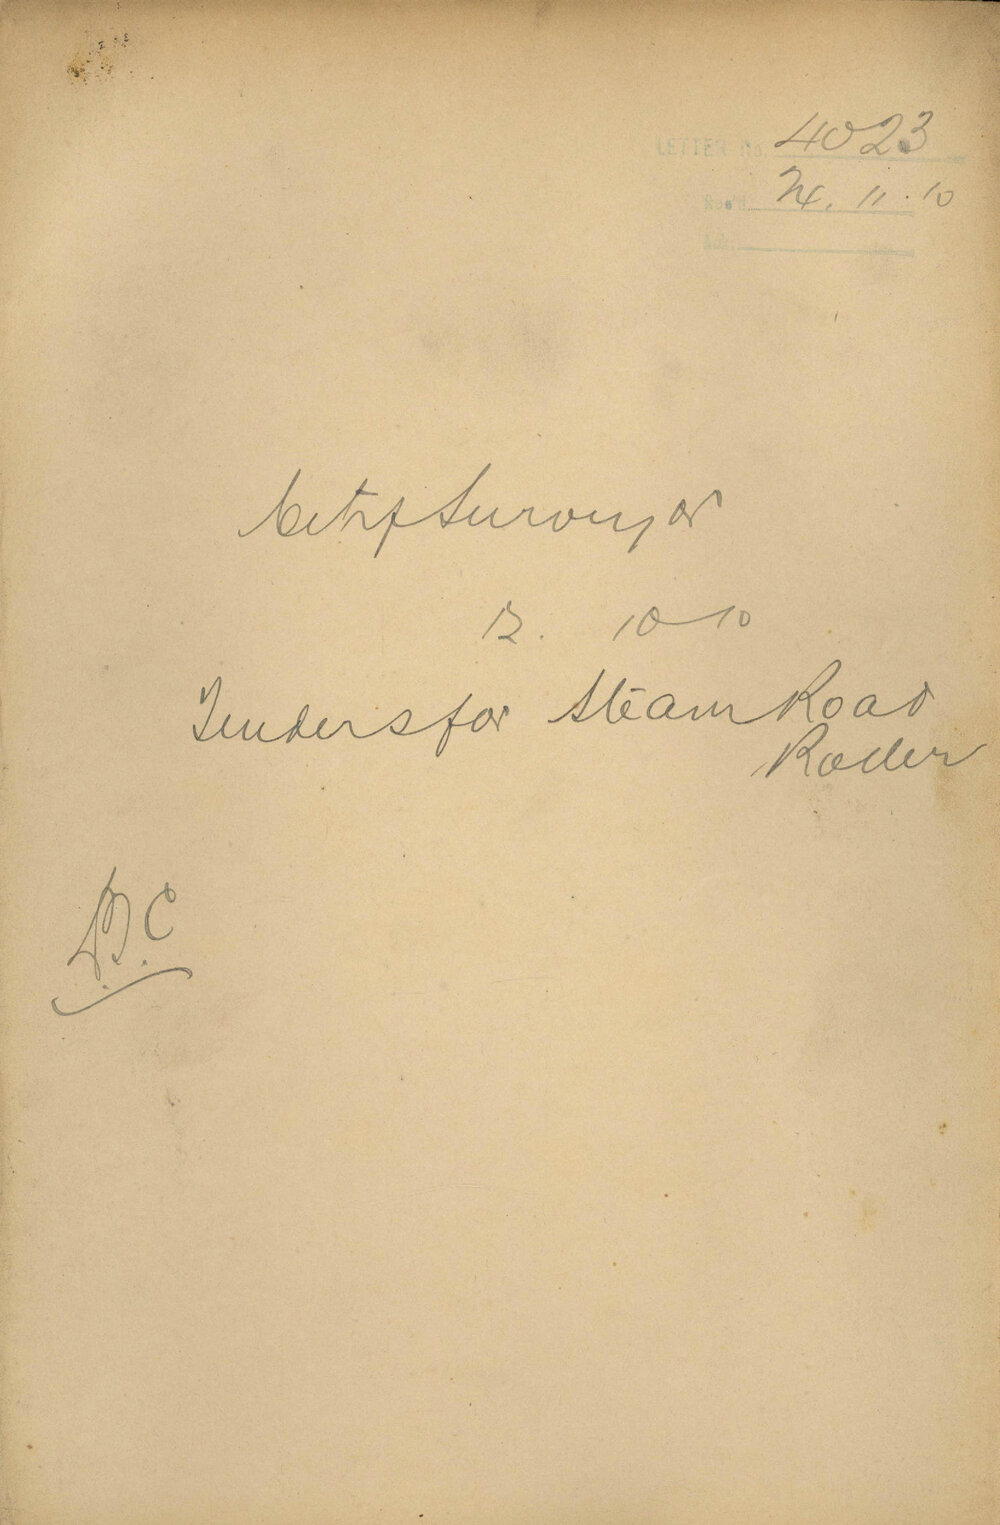 LETTER No. 4023
Rec'd 24.11.10
City Surveyor
12. 10 10
Tenders for Steam Road
Roller